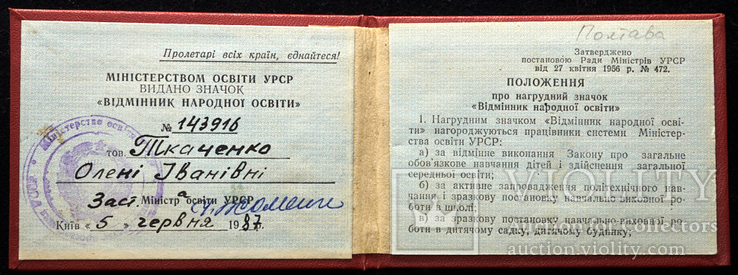 Пролетарі всіх країн, єднайтеся!
МІНІСТЕРСТВОМ ОСВІТИ УРСР
ВИДАНО ЗНАЧОК
«ВІДМІННИК НАРОДНОЇ ОСВІТИ»
№ 143916
тов. Ткаченко
Олені Іванівні
Заст. Міністра освіти УРСР
Київ « 5 » червня 1987р.
Полтава
Затверджено
постановою Ради Міністрів УРСР
від 27 квітня 1956 р. № 472.
ПОЛОЖЕННЯ
про нагрудний значок
«Відмінник народної освіти»
1. Нагрудним значком «Відмінник народної осві-
ти» нагороджуються працівники системи Міністер-
ства освіти УРСР:
а) за відмінне виконання Закону про загальне
обов'язкове навчання дітей і здійснення загальної
середньої освіти;
б) за активне запровадження політехнічного нав-
чання і зразкову постановку навчально-виховної ро-
боти в школі;
в) за зразкову постановку навчально-виховної ро-
боти в дитячому садку, дитячому будинку,
VIOLITY
auction.violity.com